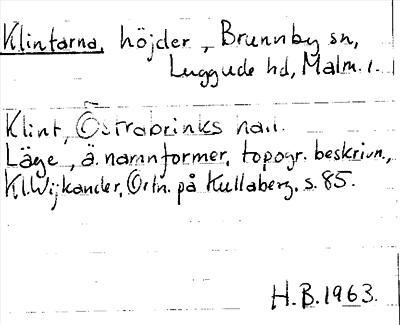 Klintarna, höjder, Brunnby sn,
Luggude hd, Malm. l.
Klint, Östrabrinks
Läge, ä. namnformer, topogr. beskrivn.,
Kl. Wijkander, Ortn. på Kullaberg, s. 85.
H.B. 1963.